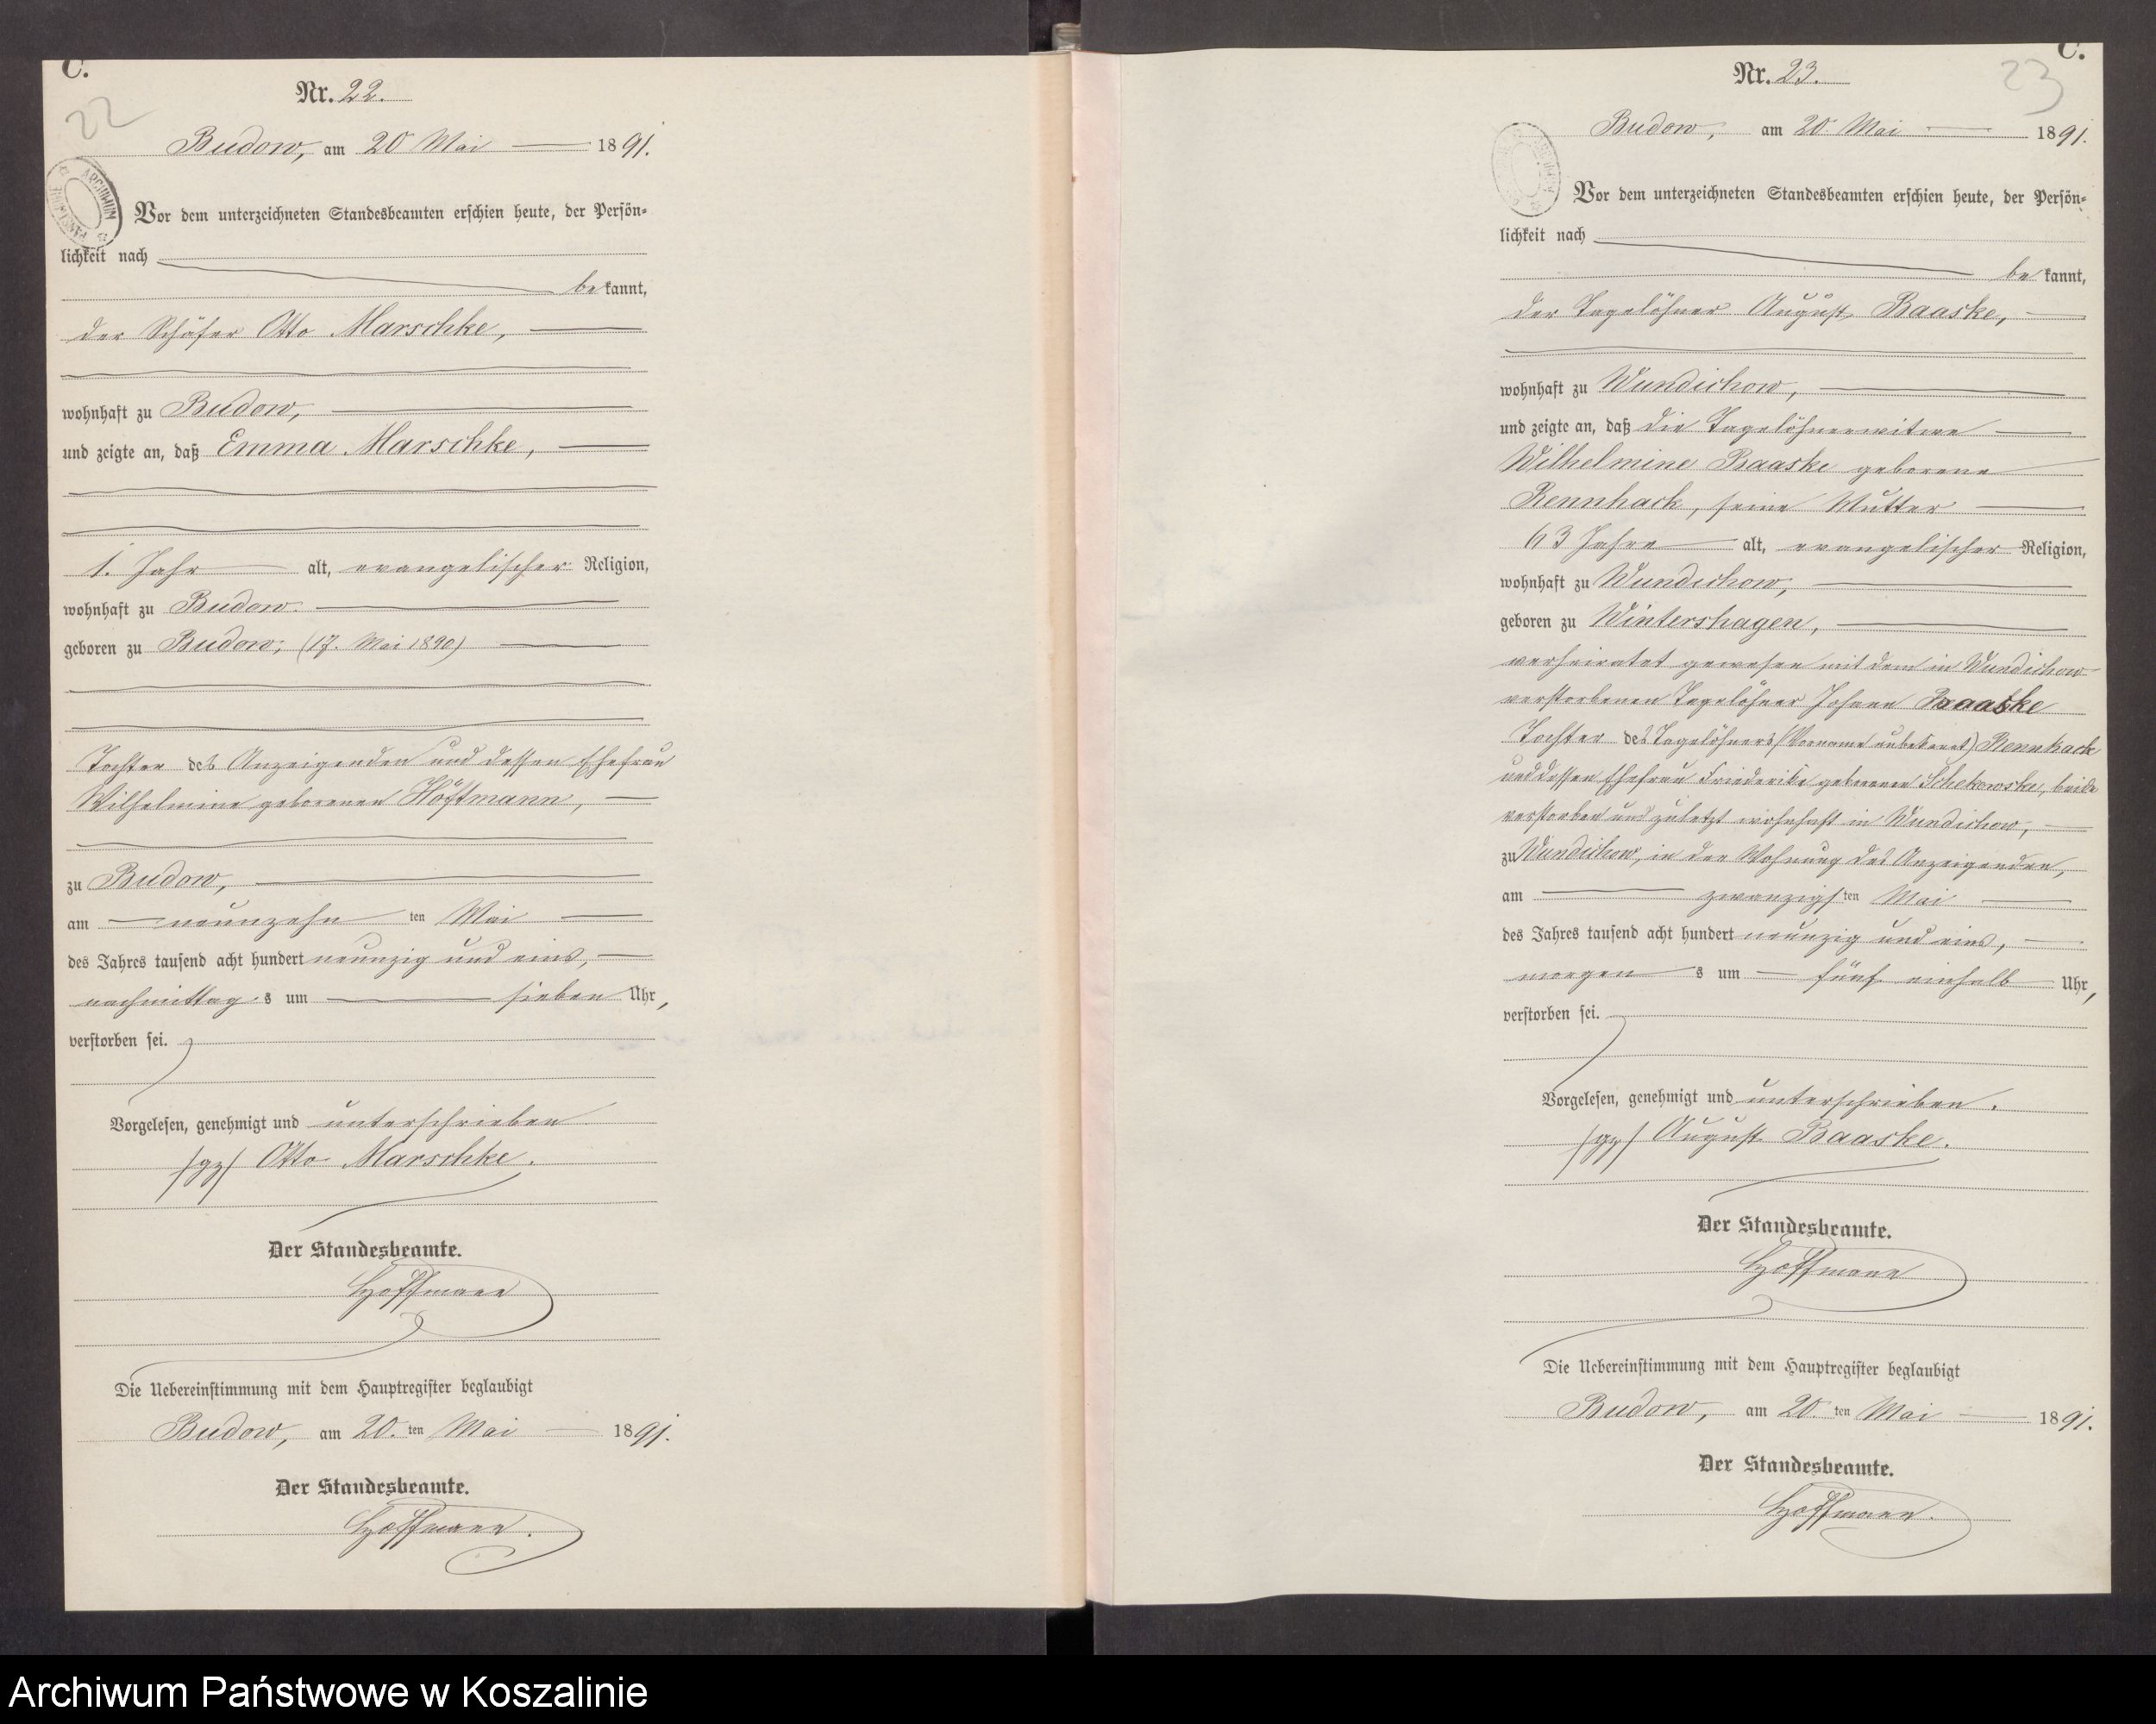 C.
22
Nr. 22.
Budow, am 20 Mai 1891.
ARCHIWUM PAŃSTWOWE
Vor dem unterzeichneten Standesbeamten erschien heute, der Persön-
lichkeit nach
bekannt,
der Schäfer Otto Marschke,
wohnhaft zu Budow,
und zeigte an, daß Emma Marschke,
1. Jahr alt, evangelischer Religion,
wohnhaft zu Budow.
geboren zu Budow, (17. Mai 1890)
Tochter des Anzeigenden und dessen Ehefrau
Wilhelmine geborenen Höftmann,
zu Budow,
am neunzehn ten Mai
des Jahres tausend acht hundert neunzig und eins,
nachmittags um sieben Uhr,
verstorben sei.
Vorgelesen, genehmigt und unterschrieben
/gz/ Otto Marschke.
Der Standesbeamte.
Hoffmann
Die Uebereinstimmung mit dem Hauptregister beglaubigt
Budow, am 20. ten Mai 1891.
Der Standesbeamte.
Hoffmann.
C.
23
Nr. 23.
Budow, am 20. Mai 1891.
Vor dem unterzeichneten Standesbeamten erschien heute, der Persön-
lichkeit nach
bekannt,
der Tagelöhner August Baaske,
wohnhaft zu Wundichow,
und zeigte an, daß die Tagelöhnerwitwe
Wilhelmine Baaske geborene
Rennhack, seine Mutter
63 Jahre alt, evangelischer Religion,
wohnhaft zu Wundichow,
geboren zu Wintershagen,
verheiratet gewesen mit dem in Wundichow
verstorbenen Tagelöhner Johann Baaske
Tochter des Tagelöhners (Vorname unbekannt) Rennhack
und dessen Ehefrau Friederike geborenen Schekowske, beide
verstorben und zuletzt wohnhaft in Wundichow,
zu Wundichow, in der Wohnung des Anzeigenden,
am zwanzigsten Mai
des Jahres tausend acht hundert neunzig und eins,
morgens um fünf einhalb Uhr,
verstorben sei.
Vorgelesen, genehmigt und unterschrieben.
/gz/ August Baaske.
Der Standesbeamte.
Hoffmann
Die Uebereinstimmung mit dem Hauptregister beglaubigt
Budow, am 20. ten Mai 1891.
Der Standesbeamte.
Hoffmann.
Archiwum Państwowe w Koszalinie